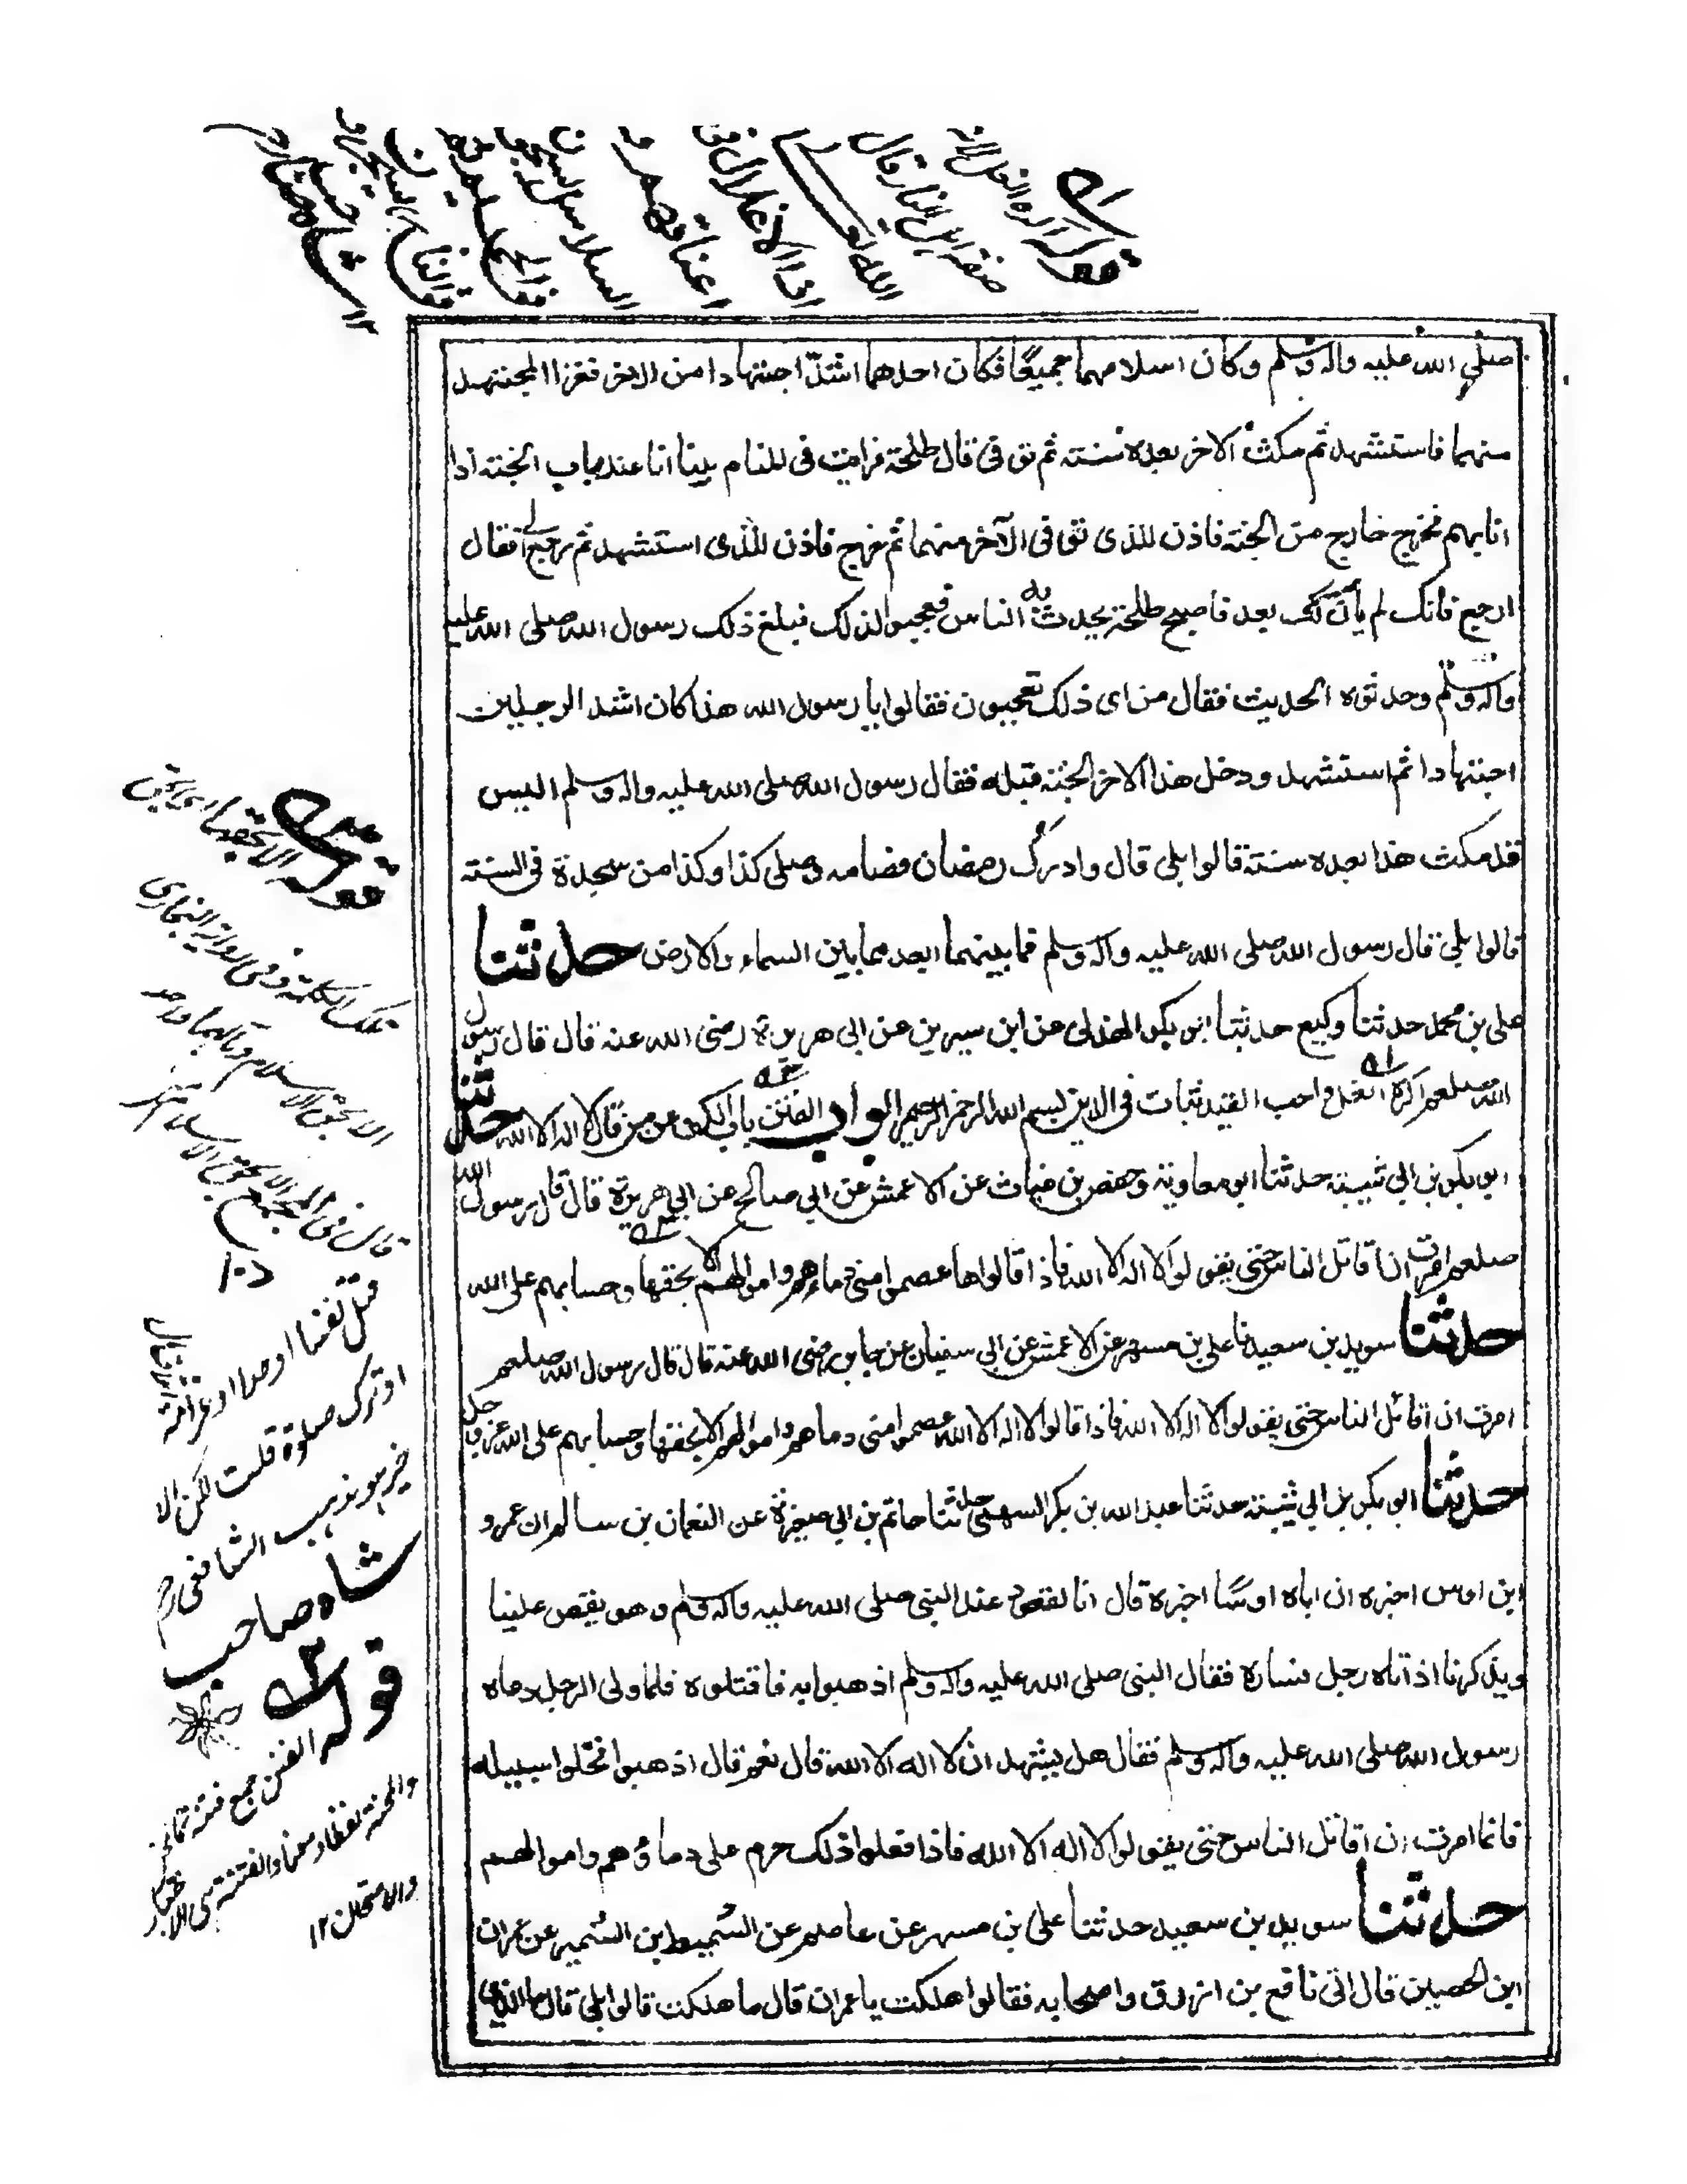 قوله اكره الغل لانه
صفة اهل النار قال
الله تعالى
اذا الاغلال في
اعناقهم و
السلاسل
شاه صاحب
صلى الله عليه واله وسلم وكان اسلامهما جميعًا فكان احدهما اشدّ اجتهادا من الاخر فغزا المجتهد
منهما فاستشهد ثم مكث الاخر بعده سنته ثم توفى قال طلحة فرايت فى المنام بينا انا عند باب الجنة اذا
انا بهم فخرج خارج من الجنة فاذن للذى توفى الآخر منهما ثم خرج فاذن للذى استشهد ثم رجع الى فقال
ارجع فانك لم يأن لك بعد فاصبح طلحة يحدث به الناس فعجبوا لذلك فبلغ ذلك رسول الله صلى الله عليه
واله وسلم وحدثوه الحديث فقال من اى ذلك تعجبون فقالوا يا رسول الله هذا كان اشد الرجلين
اجتهادا ثم استشهد ودخل هذا الاخر الجنة قبله فقال رسول الله صلى الله عليه واله وسلم اليس
قد مكث هذا بعده سنة قالوا بلى قال وادرك رمضان فصامه وصلى كذا وكذا من سجدة فى السنة
قالوا بلى قال رسول الله صلى الله عليه واله وسلم فما بينهما ابعد مما بين السماء والارض حدثنا
على بن محمد حدثنا وكيع حدثنا ابو بكر الهذلى عن ابن سيرين عن ابى هريرة رضى الله عنه قال قال رسول
الله صلعم اكره الغل واحب القيد ثبات فى الدين بسم الله الرحمن الرحيم ابواب الفتن باب الكف عمن قال لا اله الا الله حدثنا
ابو بكر بن ابى شيبة حدثنا ابو معاوية وحفص بن غياث عن الاعمش عن ابى صالح عن ابى هريرة قال قال رسول الله
صلعم امرت ان اقاتل الناس حتى يقولوا لا اله الا الله فاذا قالوها عصموا منى دماءهم واموالهم الا بحقها وحسابهم على الله
حدثنا سويد بن سعيد نا على بن مسهر عن الاعمش عن ابى سفيان عن جابر رضى الله عنه قال قال رسول الله صلعم
امرت ان اقاتل الناس حتى يقولوا لا اله الا الله فاذا قالوا لا اله الا الله عصموا منى دماءهم واموالهم الا بحقها وحسابهم على الله عز و جل
حدثنا ابو بكر بن ابى شيبة حدثنا عبد الله بن بكر السهمى حدثنا حاتم بن ابى صغيرة عن النعمان بن سالم ان عمرو
ابن اوس اخبره ان اباه اوسًا اخبره قال انا لقعود عند النبى صلى الله عليه واله وسلم وهو يقص علينا
ويذكرنا اذ اتاه رجل فساره فقال النبى صلى الله عليه واله وسلم اذهبوا به فاقتلوه فلما ولى الرجل دعاه
رسول الله صلى الله عليه واله وسلم فقال هل يشهد ان لا اله الا الله قال نعم قال اذهبوا فخلوا سبيله
فانما امرت ان اقاتل الناس حتى يقولوا لا اله الا الله فاذا فعلوا ذلك حرم على دماؤهم واموالهم
حدثنا سويد بن سعيد حدثنا على بن مسهر عن عاصم عن السميط ابن السمير عن عمران
ابن الحصين قال اتى نافع بن ازرق واصحابه فقالوا هلكت يا عمران قال ما هلكت قالوا بلى قال ما الذى
قوله الا بحقها
تلك الكلمة وفى الرواية البخارى
الا بحق الاسلام
قتل نفسا او حدا او غرامة
او ترك صلوة قلت لكن
خير هو مذهب الشافعى رح
شاه صاحب
قوله الفتن جمع فتنة
والمحنة لفظا ومعنا والفتنة
والامتحان ١٢